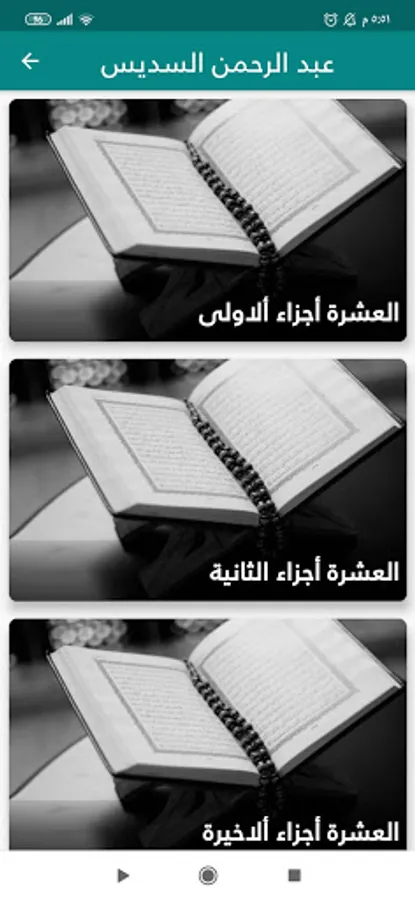 96
٥:٥١ م
عبد الرحمن السديس
العشرة أجزاء ألاولى
العشرة أجزاء الثانية
العشرة أجزاء ألاخيرة